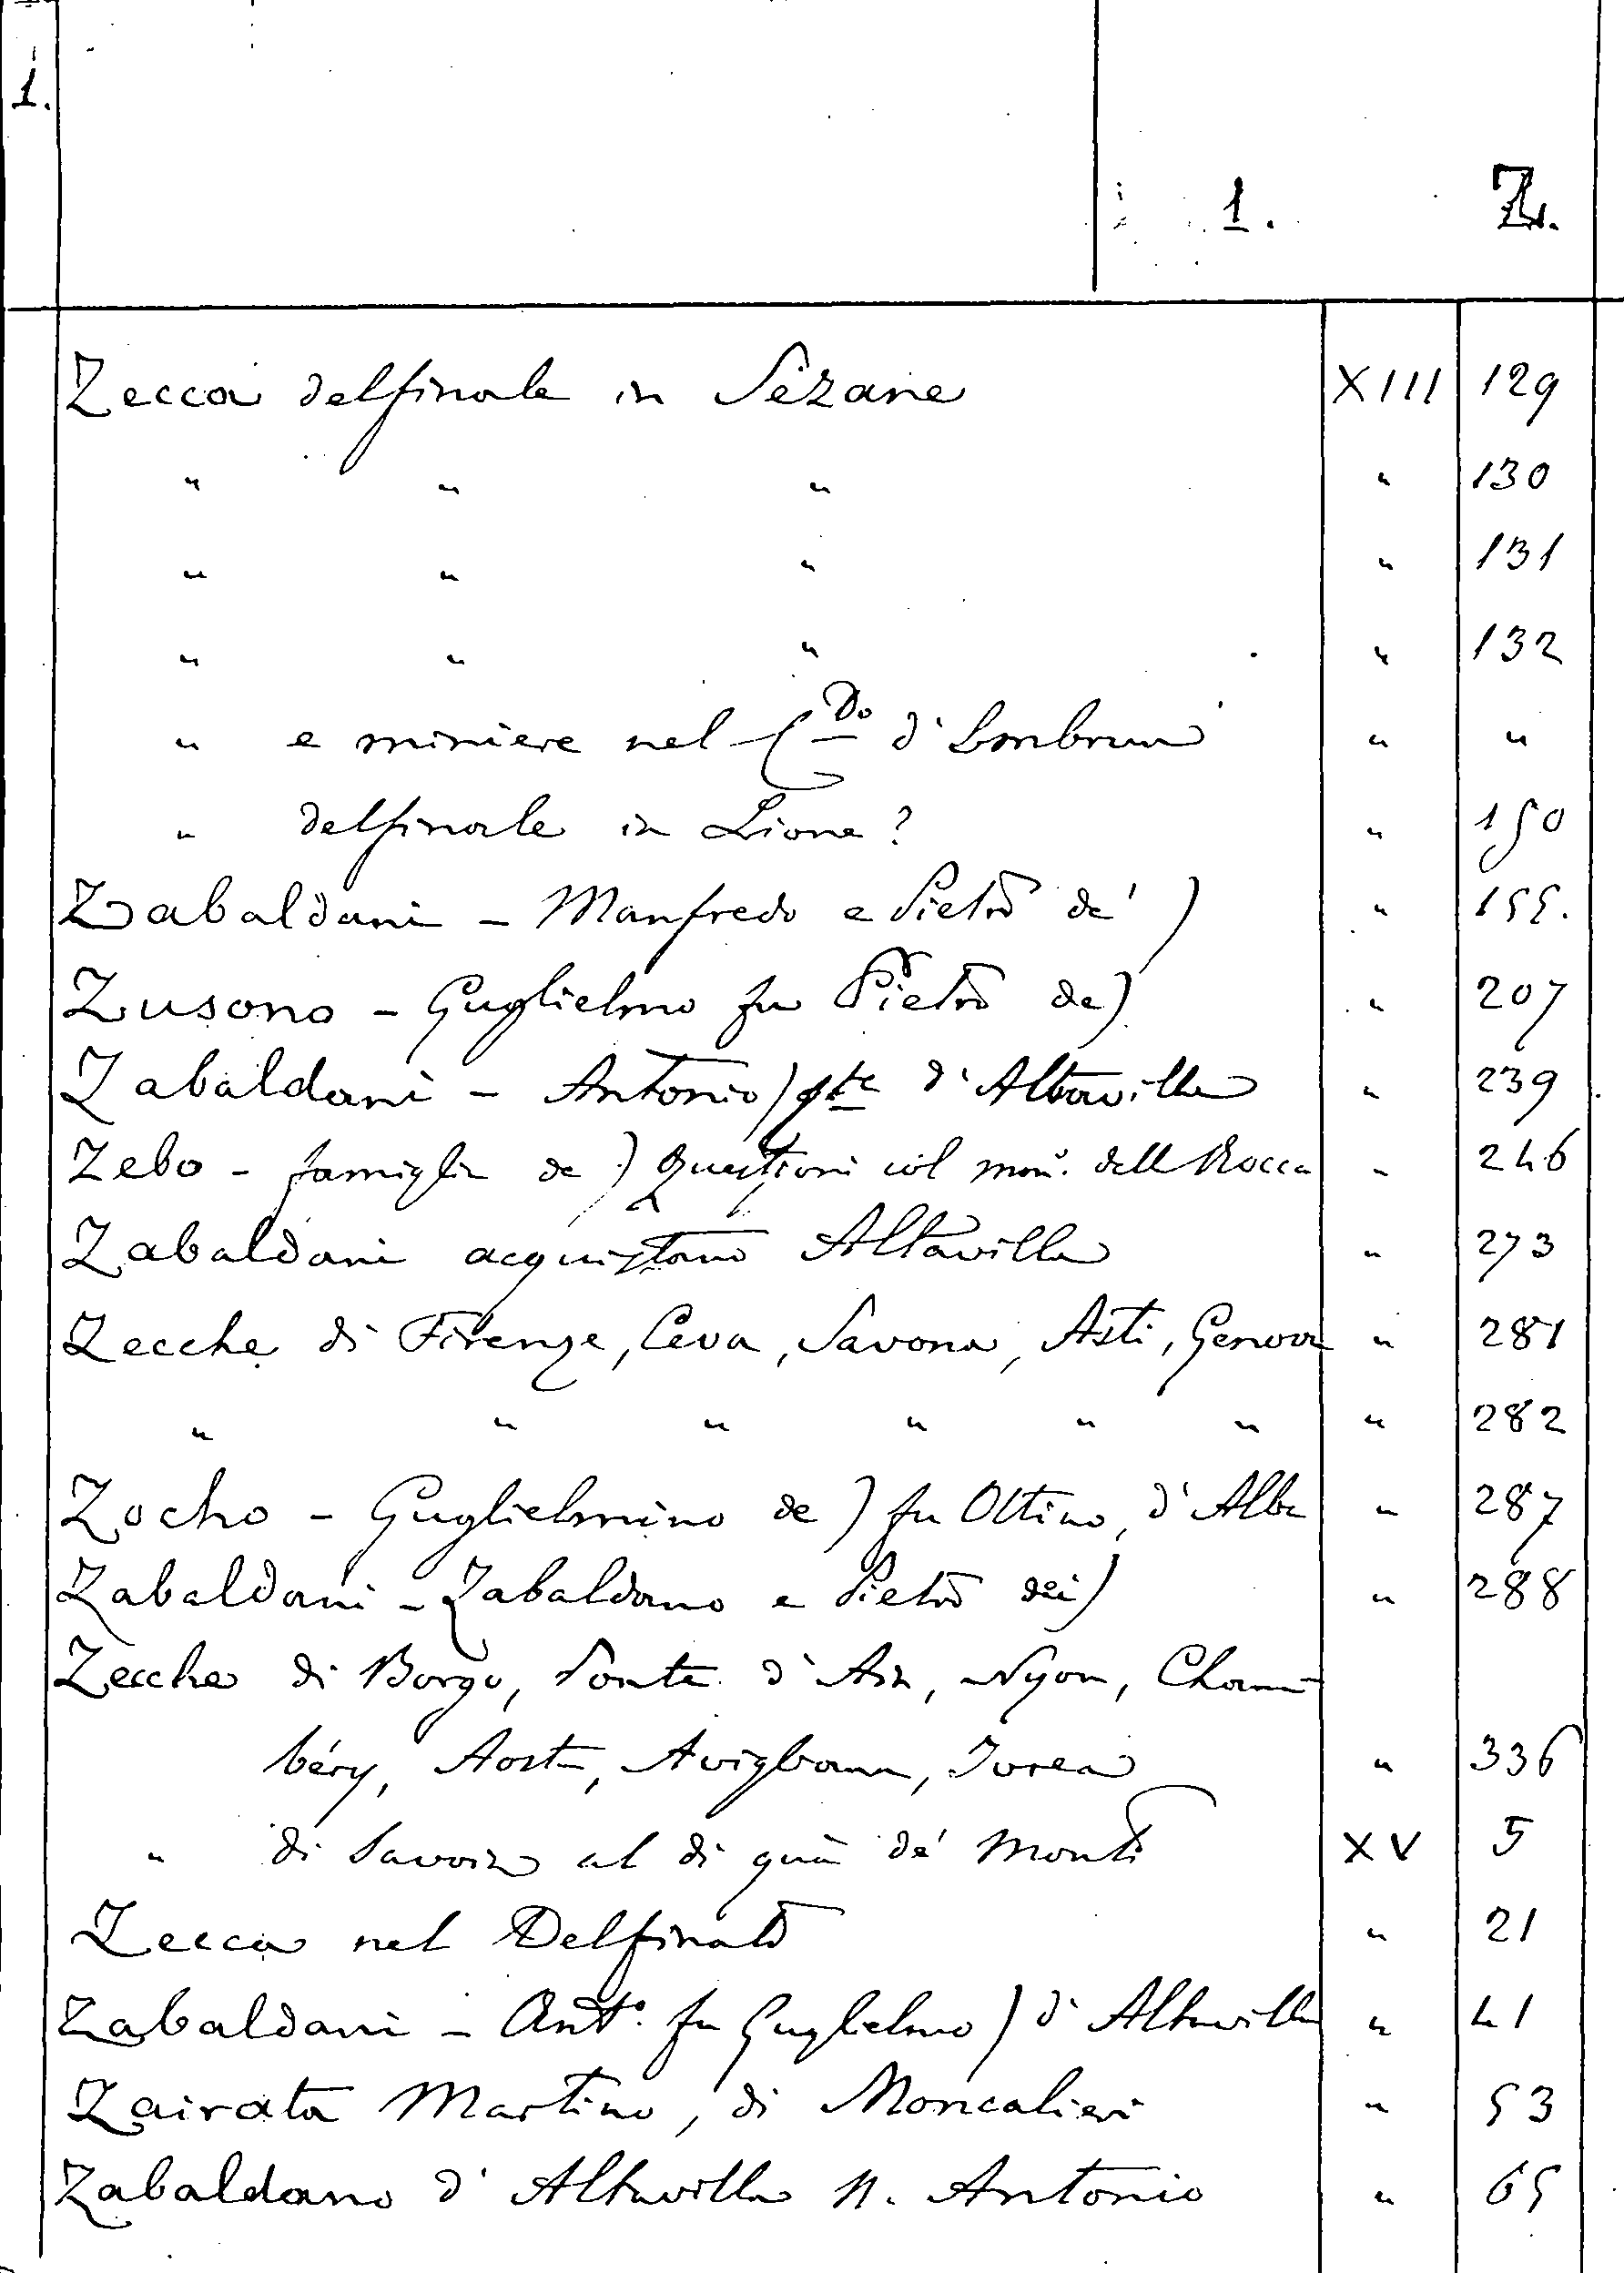 1.
1. Z.
Zecca delfinale in Sézane XIII 129
" " " " 130
" " " " 131
" " " " 132
" e miniere nel C.do d'Embrun " "
" delfinale in Lione? " 150
Zabaldani - Manfredo e Pietro de') " 155.
Zusono - Guglielmo fu Pietro de) " 207
Zabaldani - Antonio) d'Altavilla " 239
Zebo - famiglia de) Questioni col mon. dell Rocca " 246
Zabaldani acquistano Altavilla " 273
Zecche di Firenze, Ceva, Savona, Asti, Genova " 281
" " " " " " " 282
Zocho - Guglielmino de) fu Ottino, d'Alba " 287
Zabaldani - Zabaldano e Pietro dei) " 288
Zecche di Borgo, Ponte d'Ain, Nyon, Cham-
béry, Aosta, Avigliana, Ivrea " 336
" di Savoia al di quà de' Monti XV 5
Zecca nel Delfinato " 21
Zabaldani - Ant.o fu Guglielmo) d'Altavilla " 41
Zairata Martino, di Moncalieri " 53
Zabaldano d'Altavilla N. Antonio " 65